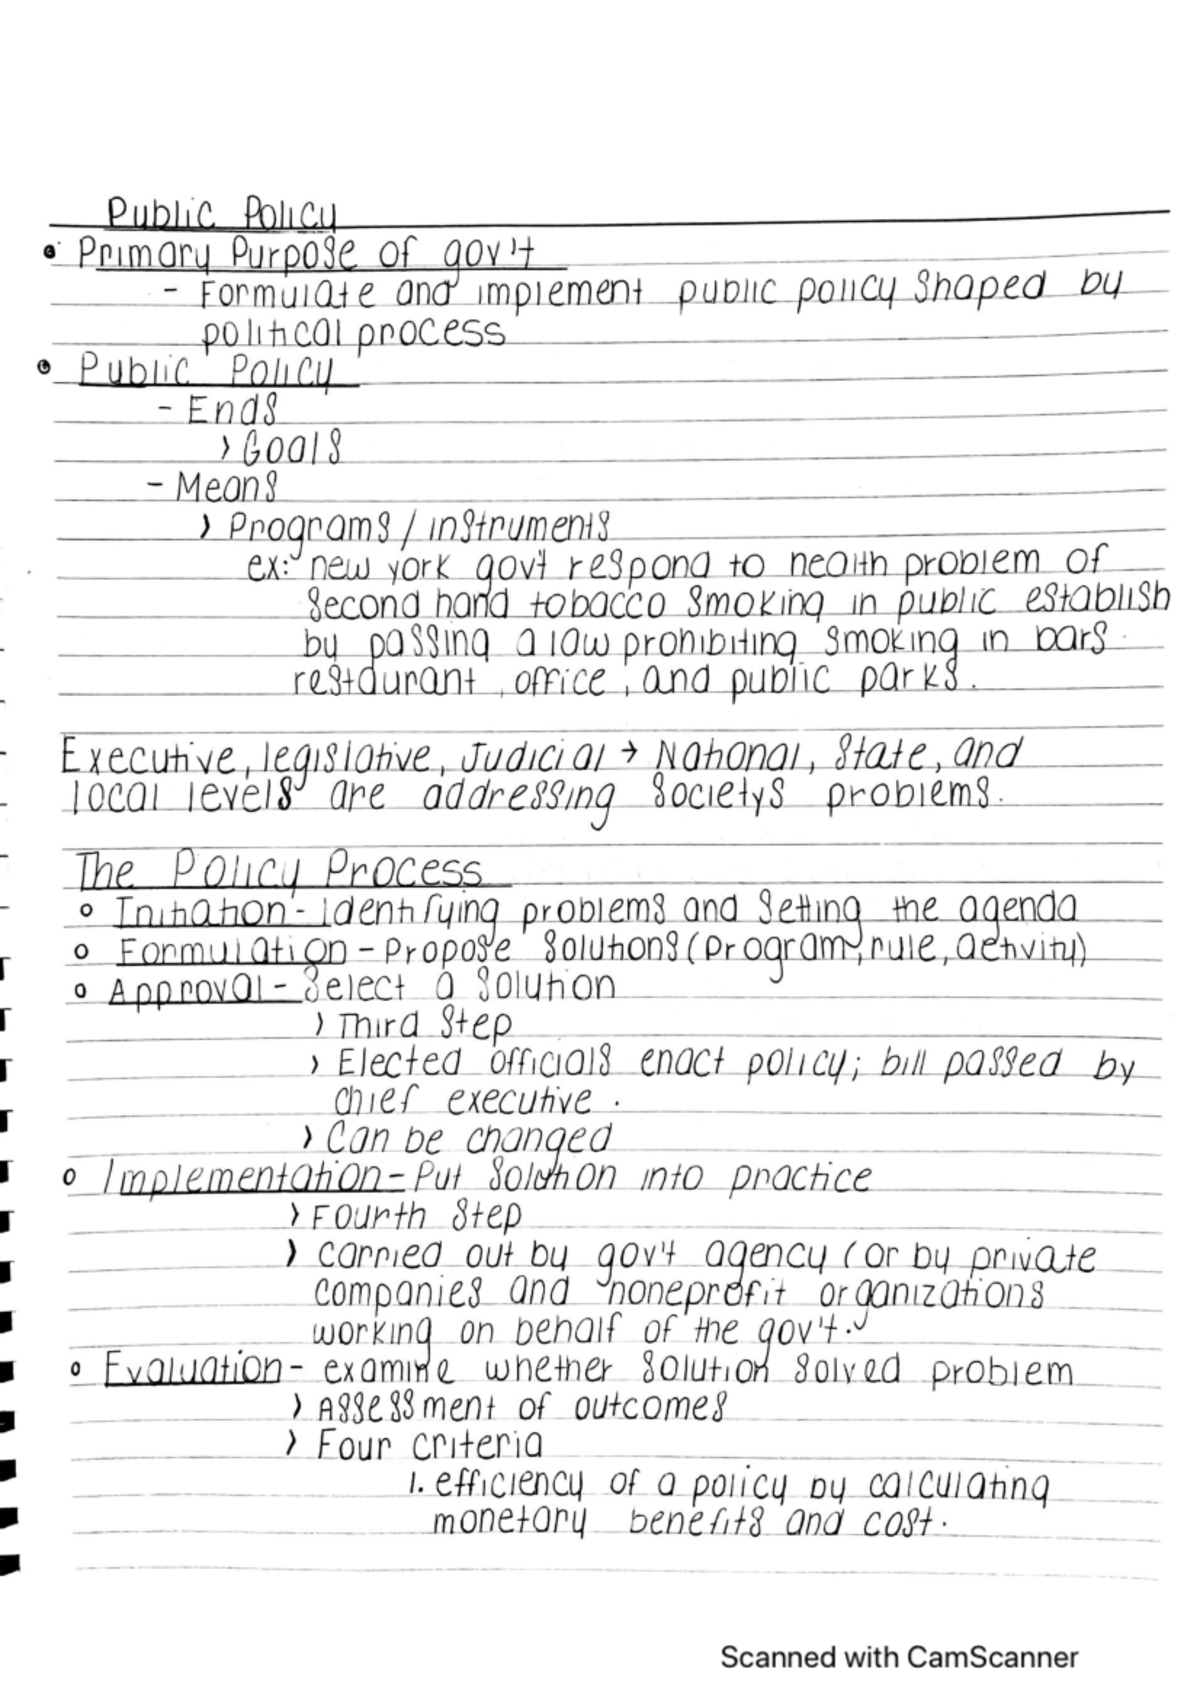 Public Policy
• Primary Purpose of gov't
- Formulate and implement public policy shaped by
political process
• Public Policy
- Ends
> Goals
- Means
> Programs / instruments
ex: new york gov't respond to health problem of
second hand tobacco smoking in public establish
by passing a law prohibiting smoking in bars.
restaurant, office, and public parks.
Executive, legislative, Judicial → National, State, and
local levels are addressing societys problems.
The Policy Process
o Initiation - Identifying problems and setting the agenda
o Formulation - Propose solutions (program, rule, activity)
o Approval - Select a solution
> Third step
> Elected officials enact policy; bill passed by
chief executive.
> Can be changed
o Implementation - Put solution into practice
> Fourth step
> carried out by gov't agency (or by private
companies and noneprofit organizations
working on behalf of the gov't.
o Evaluation - examine whether solution solved problem
> Assessment of outcomes
> Four criteria
1. efficiency of a policy by calculating
monetary benefits and cost.
Scanned with CamScanner